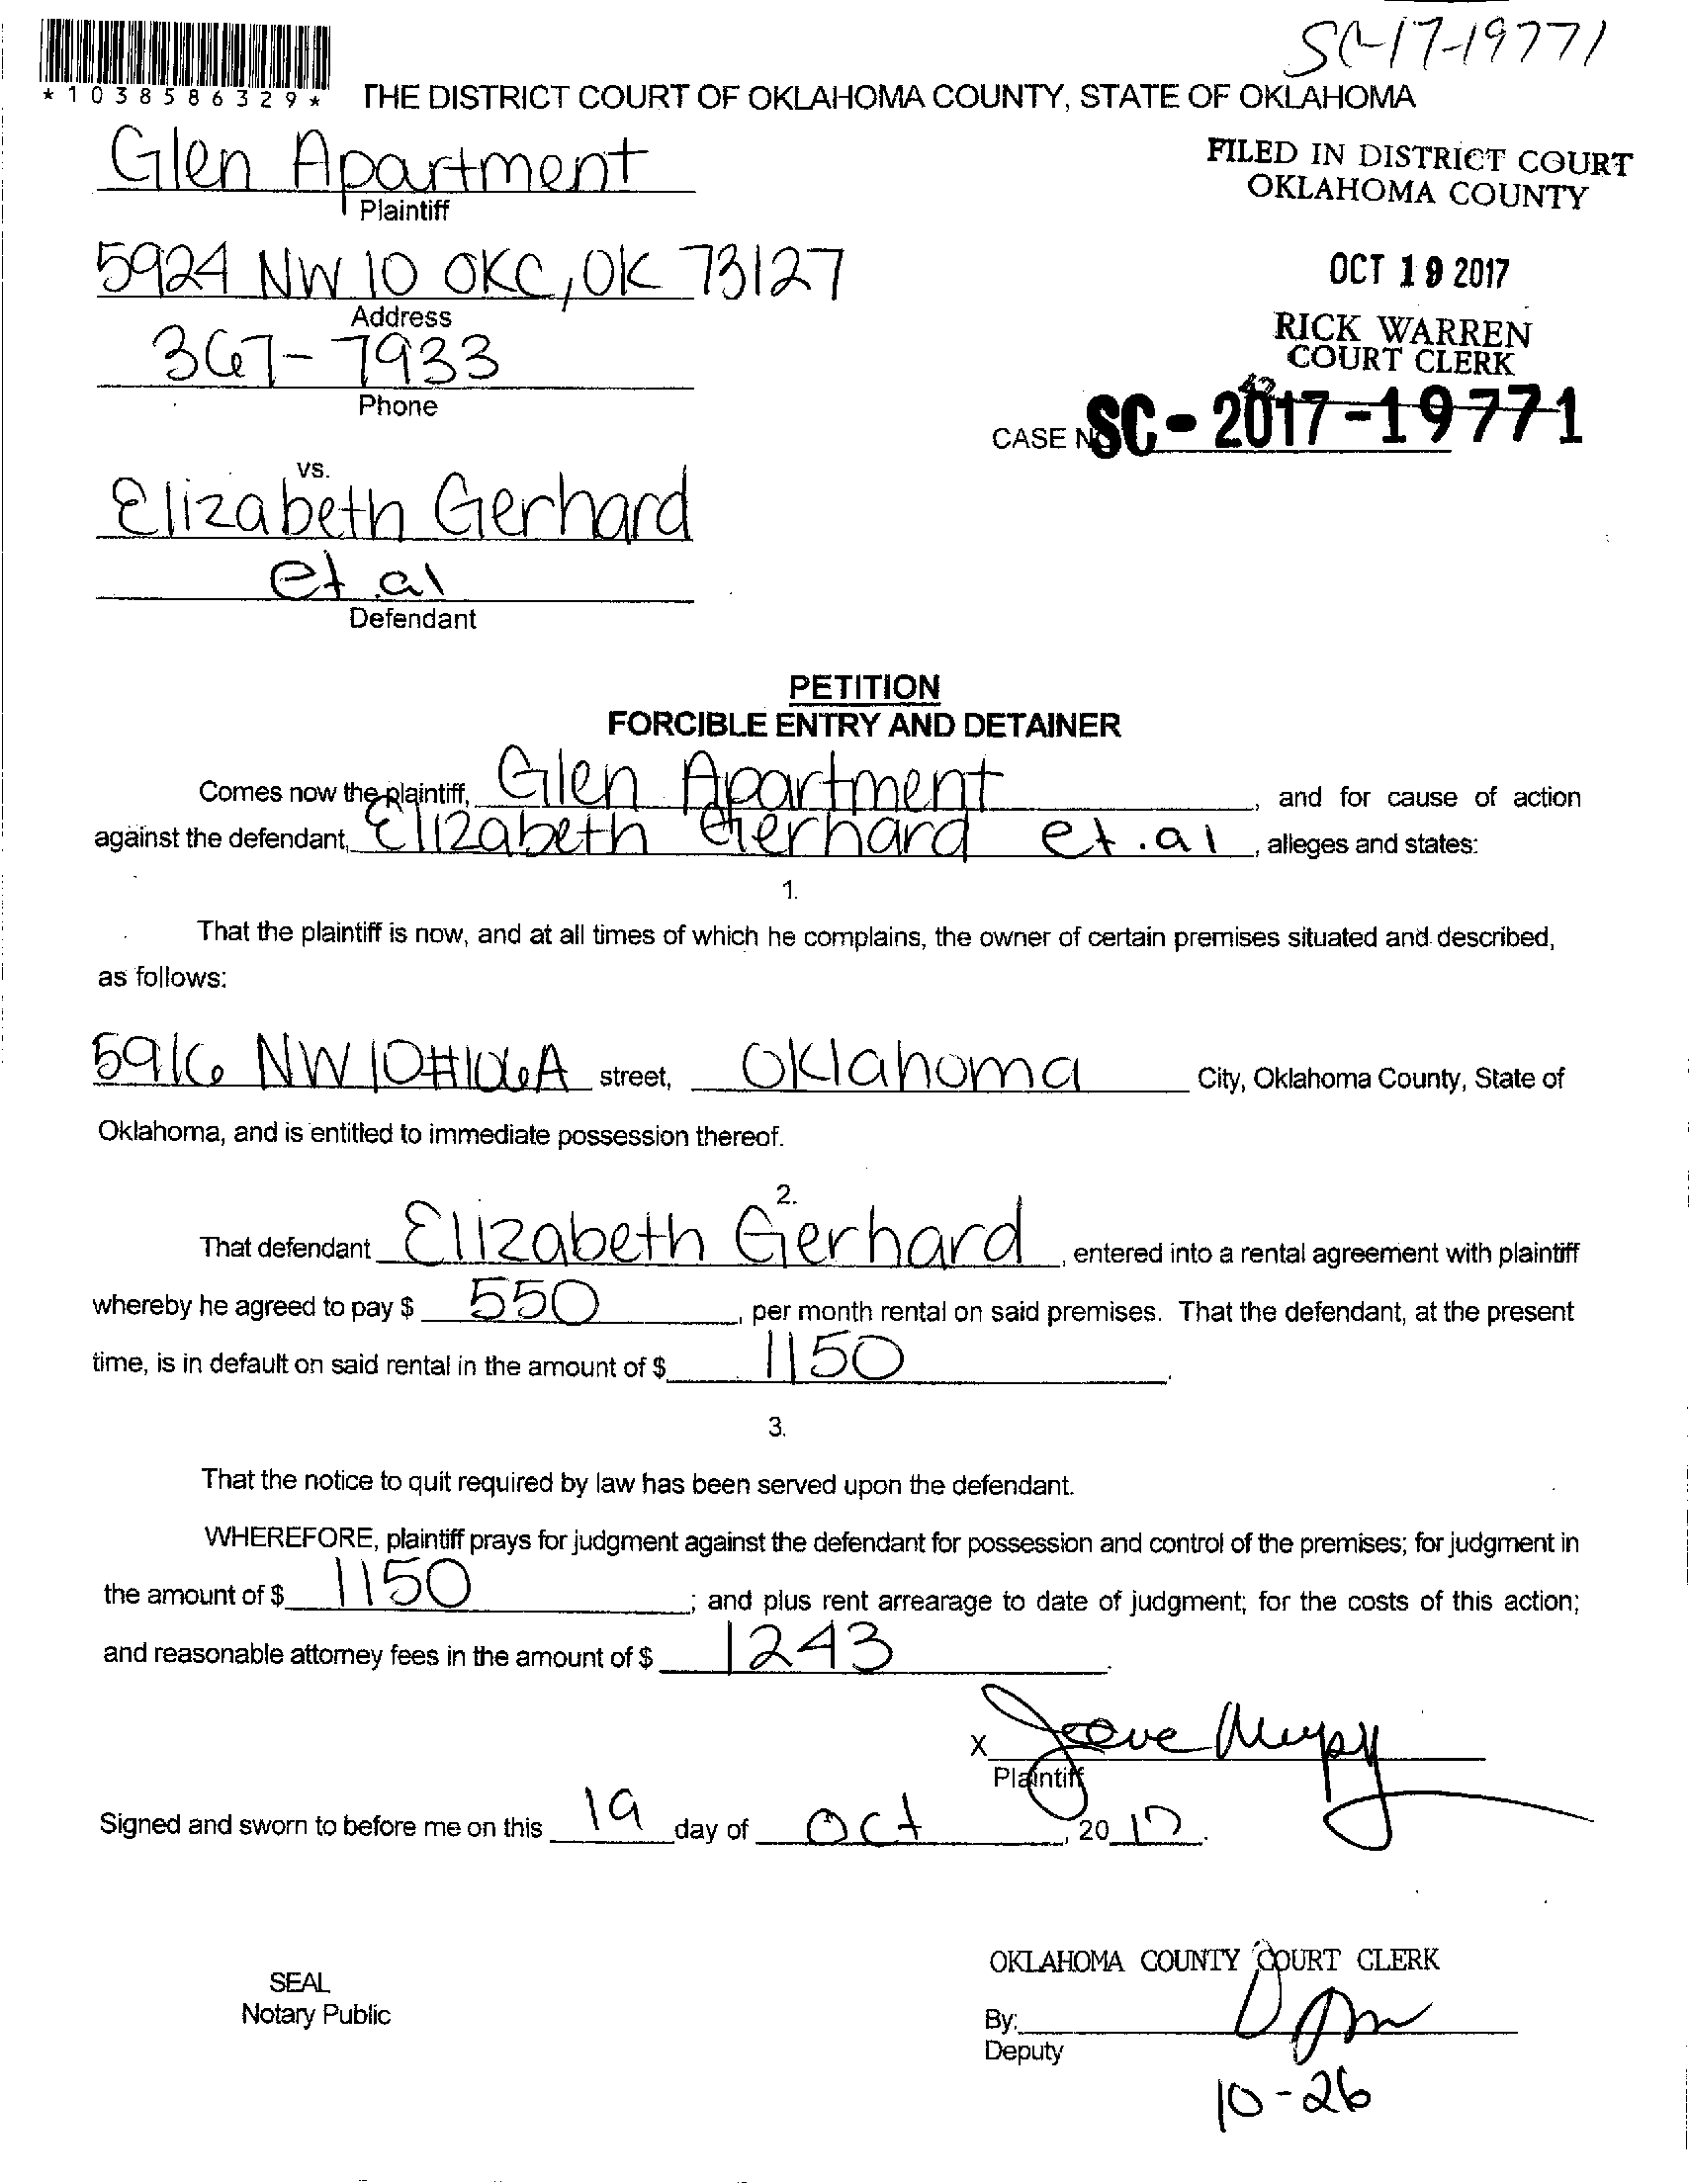 SC-17-19771
*1038586329*
THE DISTRICT COURT OF OKLAHOMA COUNTY, STATE OF OKLAHOMA
Glen Apartment
Plaintiff
FILED IN DISTRICT COURT
OKLAHOMA COUNTY
5924 NW 10 OKC, OK 73127
Address
OCT 19 2017
367-7933
Phone
RICK WARREN
COURT CLERK
42
CASE NO SC-2017-19771
vs.
Elizabeth Gerhard
et al
Defendant
PETITION
FORCIBLE ENTRY AND DETAINER
Comes now the plaintiff, Glen Apartment, and for cause of action
against the defendant, Elizabeth Gerhard et.al, alleges and states:
1.
That the plaintiff is now, and at all times of which he complains, the owner of certain premises situated and described,
as follows:
5916 NW 10 #106A street, Oklahoma City, Oklahoma County, State of
Oklahoma, and is entitled to immediate possession thereof.
2.
That defendant Elizabeth Gerhard, entered into a rental agreement with plaintiff
whereby he agreed to pay $ 550, per month rental on said premises. That the defendant, at the present
time, is in default on said rental in the amount of $ 1150.
3.
That the notice to quit required by law has been served upon the defendant.
WHEREFORE, plaintiff prays for judgment against the defendant for possession and control of the premises; for judgment in
the amount of $ 1150; and plus rent arrearage to date of judgment; for the costs of this action;
and reasonable attorney fees in the amount of $ 1243.
X
Plaintiff
Signed and sworn to before me on this 19 day of Oct, 20 17.
OKLAHOMA COUNTY COURT CLERK
SEAL
Notary Public
By:
Deputy
10-26